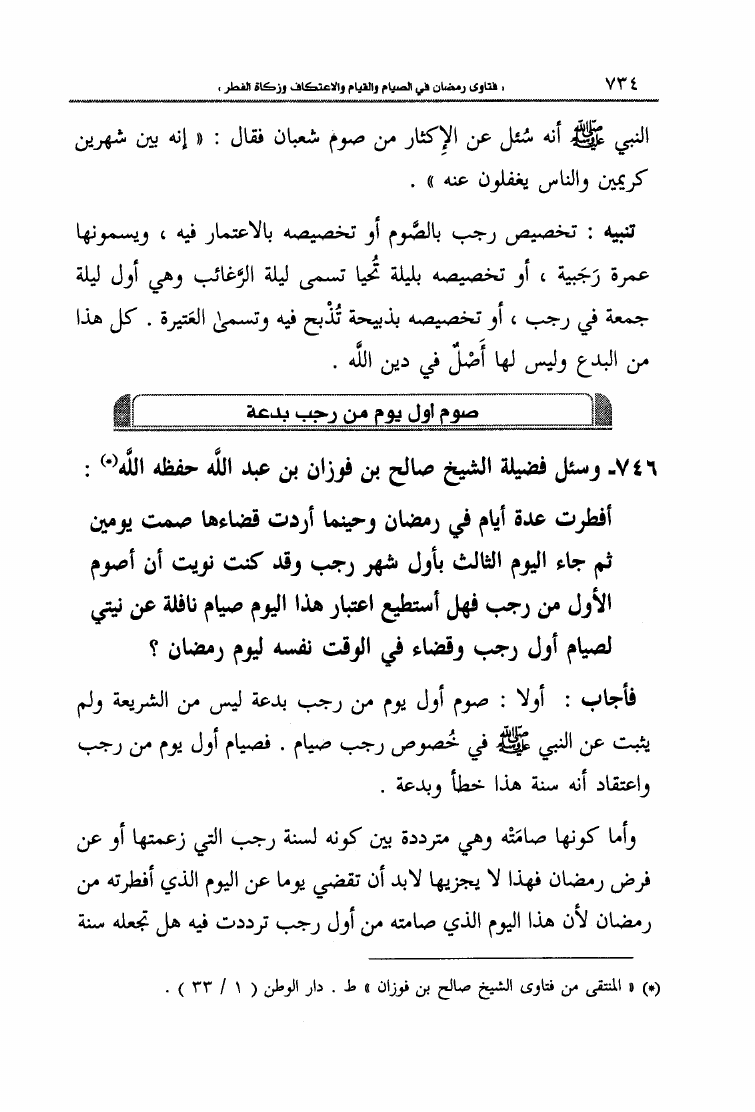 ٧٣٤ « فتاوى رمضان في الصيام والقيام والاعتكاف وزكاة الفطر »
النبي ﷺ أنه سُئل عن الإكثار من صوم شعبان فقال : « إنه بين شهرين
كريمين والناس يغفلون عنه » .
تنبيه : تخصيص رجب بالصَّوم أو تخصيصه بالاعتمار فيه ، ويسمونها
عمرة رَجَبية ، أو تخصيصه بليلة تُحيا تسمى ليلة الرَّغائب وهي أول ليلة
جمعة في رجب ، أو تخصيصه بذبيحة تُذْبح فيه وتسمىٰ العَتيرة . كل هذا
من البدع وليس لها أَصْلٌ في دين اللَّه .
صوم أول يوم من رجب بدعة
٧٤٦- وسئل فضيلة الشيخ صالح بن فوزان بن عبد اللَّه حفظه اللَّه(*) :
أفطرت عدة أيام في رمضان وحينما أردت قضاءها صمت يومين
ثم جاء اليوم الثالث بأول شهر رجب وقد كنت نويت أن أصوم
الأول من رجب فهل أستطيع اعتبار هذا اليوم صيام نافلة عن نيتي
لصيام أول رجب وقضاء في الوقت نفسه ليوم رمضان ؟
فأجاب : أولا : صوم أول يوم من رجب بدعة ليس من الشريعة ولم
يثبت عن النبي ﷺ في خُصوص رجب صيام . فصيام أول يوم من رجب
واعتقاد أنه سنة هذا خطأ وبدعة .
وأما كونها صامَتْه وهي مترددة بين كونه لسنة رجب التي زعمتها أو عن
فرض رمضان فهذا لا يجزيها لابد أن تقضي يوما عن اليوم الذي أفطرته من
رمضان لأن هذا اليوم الذي صامته من أول رجب ترددت فيه هل تجعله سنة
(*) « المنتقى من فتاوى الشيخ صالح بن فوزان » ط . دار الوطن ( ١ / ٣٣ ) .